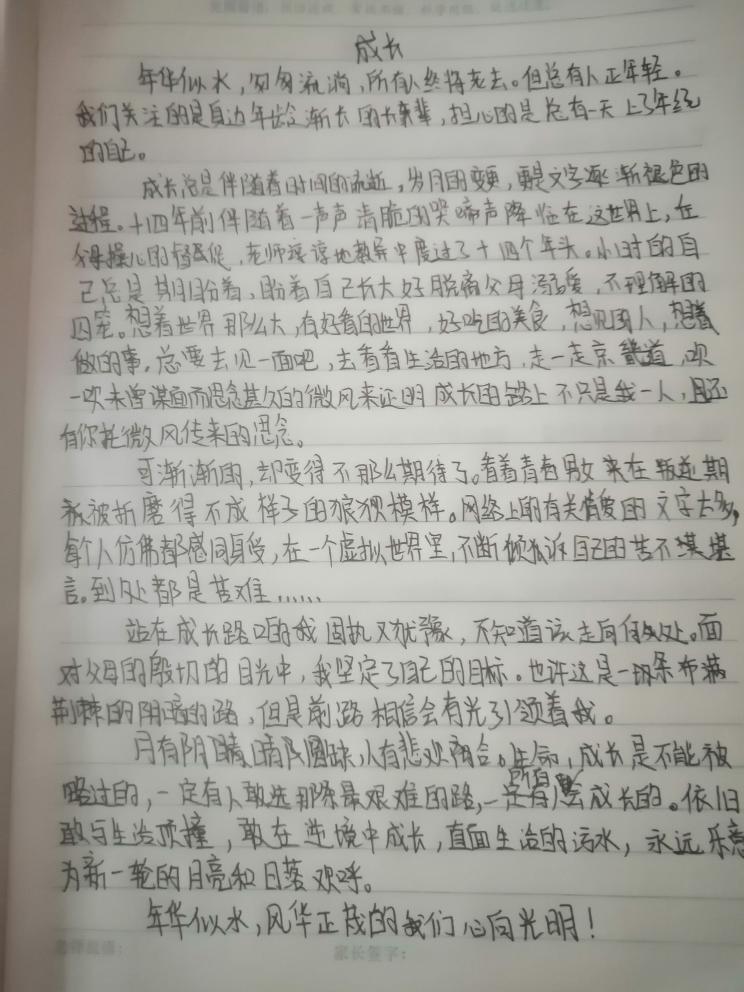 成长
年华似水，匆匆流淌，所有人终将老去。但总有人正年轻。
我们关注的是身边年龄渐长的长辈，担心的是总有一天上了年纪
的自己。
成长总是伴随着时间的流逝，岁月的变更，更是文字逐渐褪色的
过程。十四年前伴随着一声声清脆的哭啼声降临在这世界上，在
父母操心的督促，老师谆谆地教导中度过了十四个年头。小时的自
己总是期盼着，盼着自己长大好脱离父母溺爱，不理解的
囚笼。想着世界那么大，有好看的世界，好吃的美食，想见的人，想着
做的事，总要去见一面吧，去看看生活的地方，走一走京畿道，吹
一吹未曾谋面而思念甚久的微风来证明成长的路上不只是我一人，且还
有你托微风传来的思念。
可渐渐的，却变得不那么期待了。看着青春男女来在叛逆期
被折磨得不成样子的狼狈模样。网络上的有关情爱的文字太多，
每个人仿佛都感同身受，在一个虚拟世界里，不断倾诉自己的苦不堪
言。到处都是苦难……
站在成长路口的我固执又犹豫，不知道该走向何处。面
对父母的殷切的目光中，我坚定了自己的目标。也许这是一条布满
荆棘的阴暗的路，但是前路相信会有光引领着我。
月有阴晴圆缺，人有悲欢离合。生命，成长是不能被
略过的，一定有人敢选那条最艰难的路，一定有所有人会成长的。依旧
敢与生活顶撞，敢在逆境中成长，直面生活的污水，永远乐意
为新一轮的月亮和日落欢呼。
年华似水，风华正茂的我们心向光明！
家长签字：